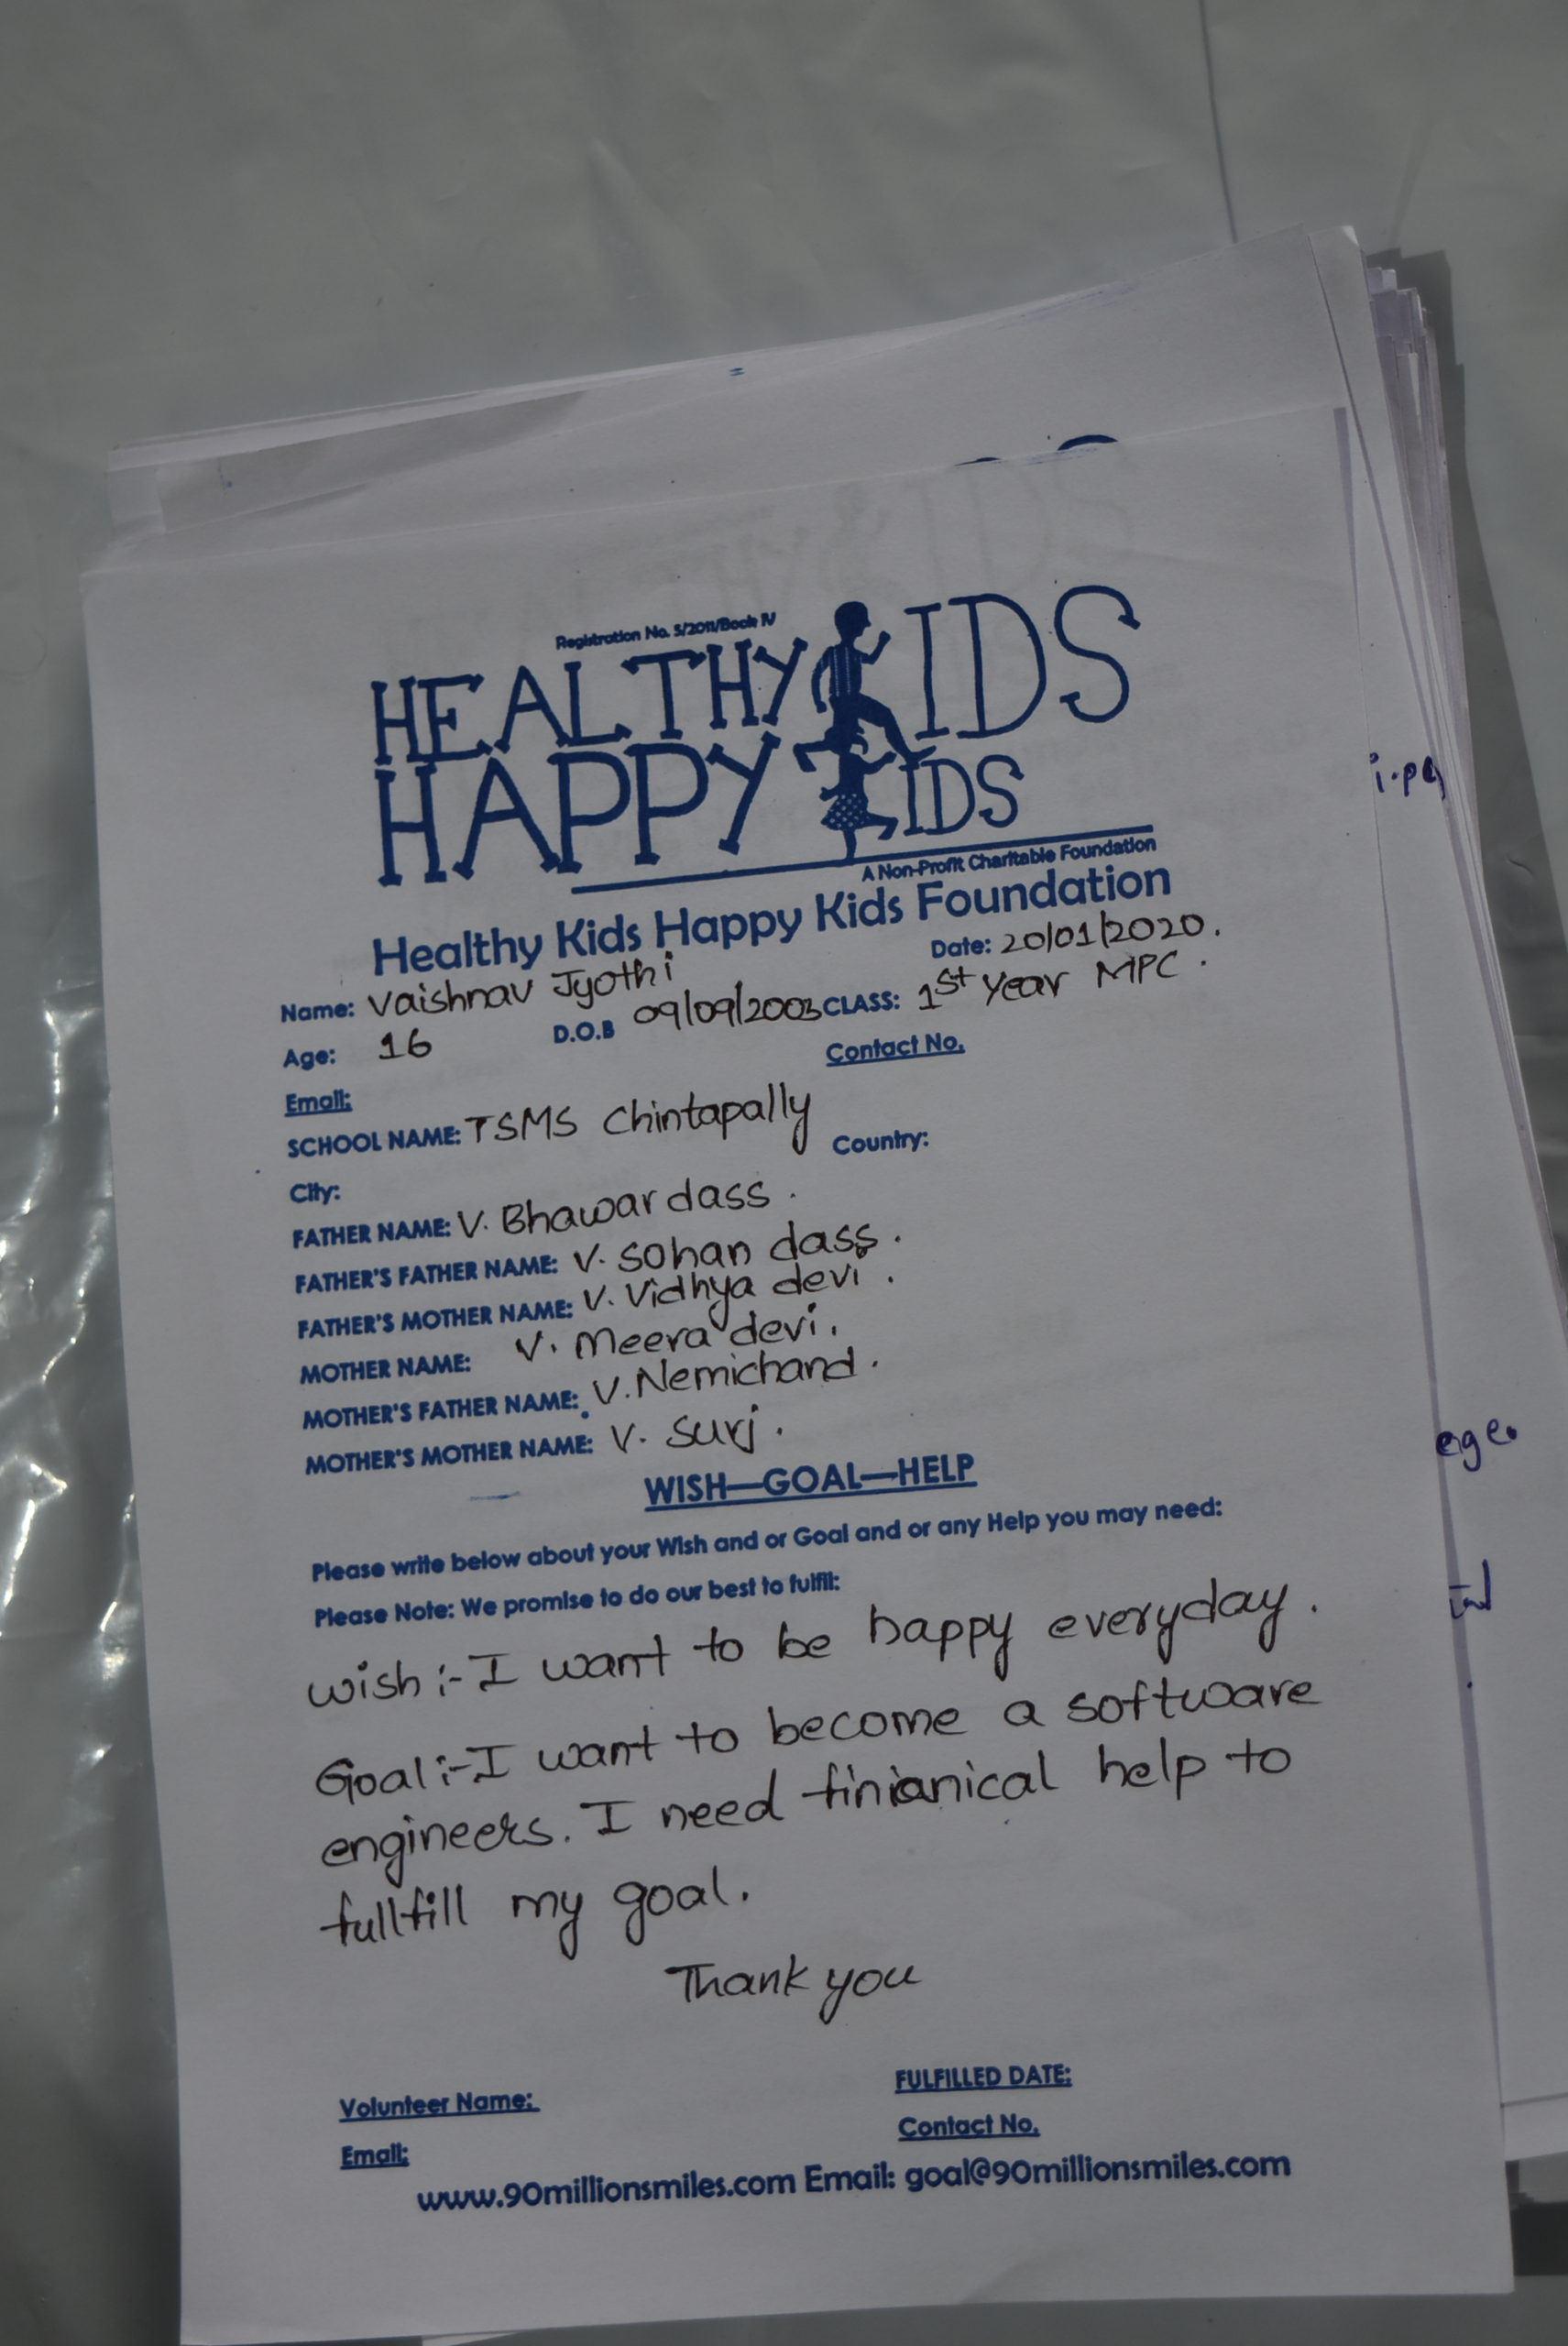 Registration No. 5/2011/Book IV
HEALTHY KIDS
HAPPY KIDS
A Non-Profit Charitable Foundation
Healthy Kids Happy Kids Foundation
Date: 20/01/2020.
Name: Vaishnav Jyothi
Age: 16 D.O.B 09/09/2003 CLASS: 1st Year MPC.
Email: Contact No.
SCHOOL NAME: TSMS Chintapally
City: Country:
FATHER NAME: V. Bhawar dass.
FATHER'S FATHER NAME: V. Sohan dass.
FATHER'S MOTHER NAME: V. Vidhya devi.
MOTHER NAME: V. Meera devi.
MOTHER'S FATHER NAME: V. Nemichand.
MOTHER'S MOTHER NAME: V. Surj.
WISH—GOAL—HELP
Please write below about your Wish and or Goal and or any Help you may need:
Please Note: We promise to do our best to fulfil:
wish :- I want to be happy everyday.
Goal :- I want to become a software
engineers. I need finianical help to
fullfill my goal.
Thank you
Volunteer Name: FULFILLED DATE:
Email: Contact No.
www.90millionsmiles.com Email: goal@90millionsmiles.com